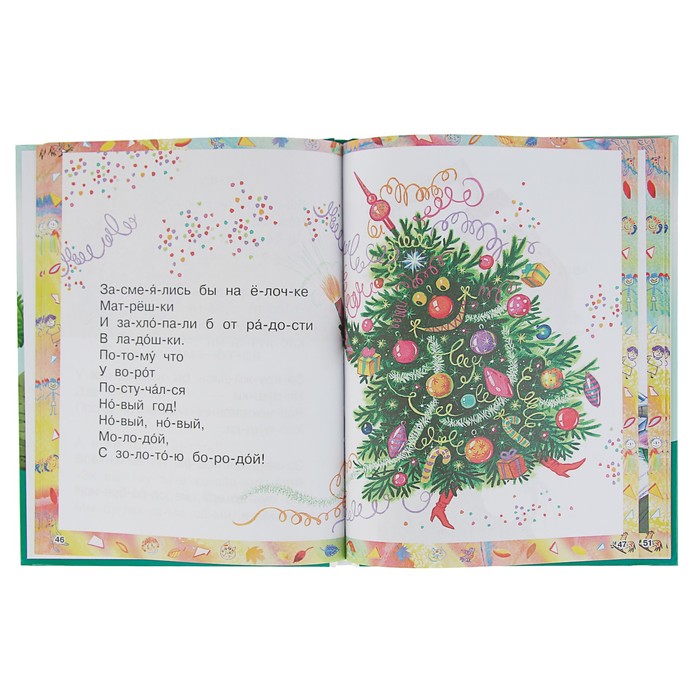 За-сме-я́-лись бы на ё-лоч-ке
Мат-рёш-ки
И за-хло́-па-ли б от ра́-до-сти
В ла-до́ш-ки.
По-то-му́ что
У во-ро́т
По-сту-ча́л-ся
Но́-вый год!
Но́-вый, но́-вый,
Мо-ло-до́й,
С зо-ло-то́-ю бо-ро-до́й!
46
47
51